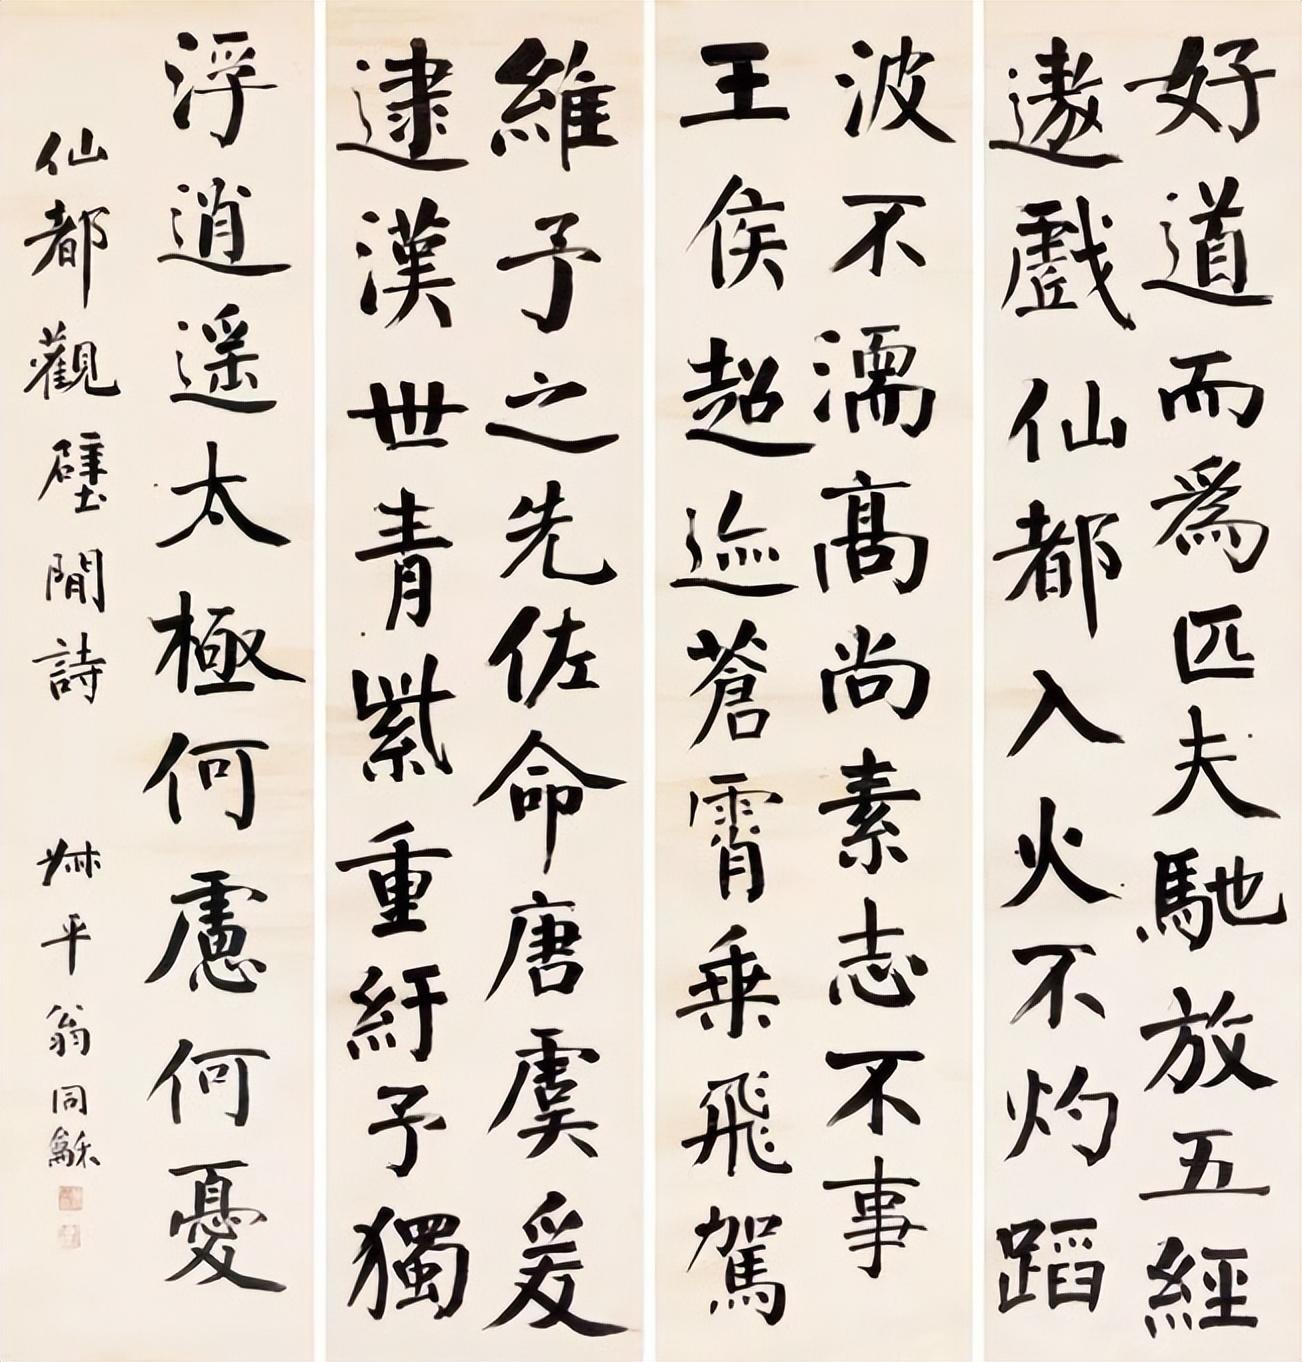 好道而為匹夫馳放五經
遨戲仙都入火不灼蹈
波不濡高尚素志不事
王侯超迹蒼霄乘飛駕
維予之先佐命唐虞爰
逮漢世青紫重紆予獨
浮逍遥太極何慮何憂
仙都觀壁間詩
叔平翁同龢